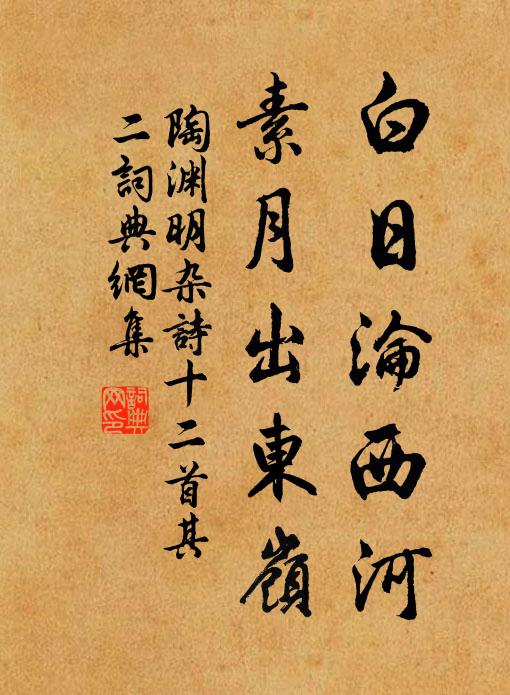 白日淪西河
素月出東嶺
陶渊明杂詩十二首其
二詞典網集
詞典
网印